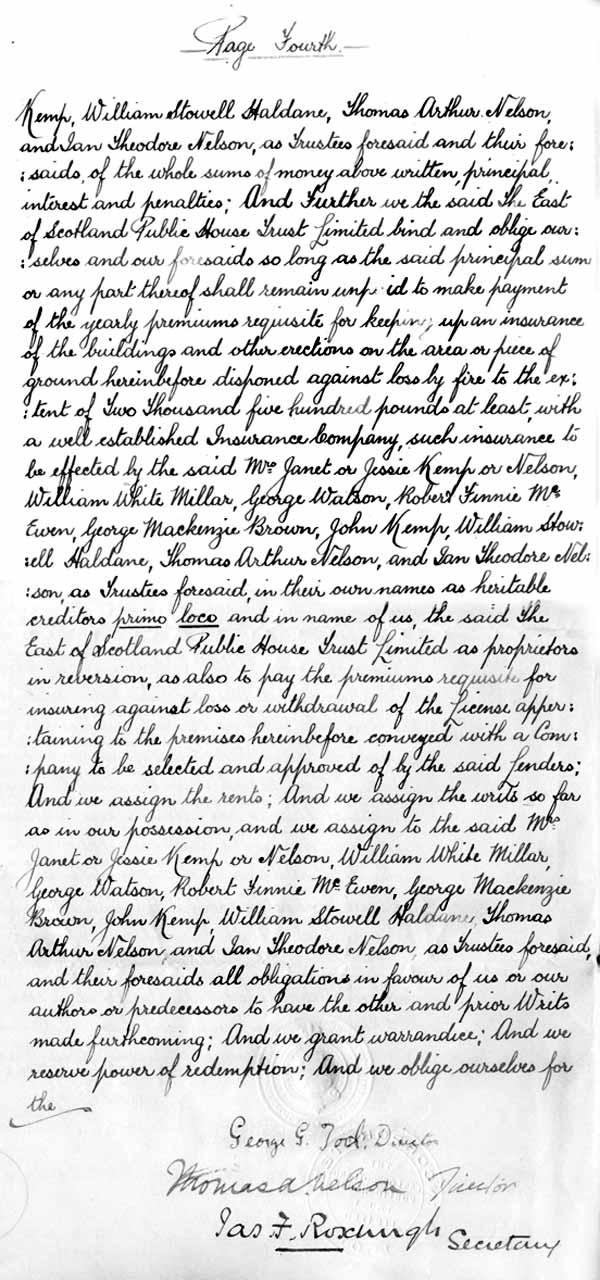 Page Fourth.
Kemp, William Stowell Haldane, Thomas Arthur Nelson,
and Ian Theodore Nelson, as Trustees foresaid and their fore:
:saids, of the whole sums of money above written, principal,
interest and penalties; And Further we the said The East
of Scotland Public House Trust Limited bind and oblige our:
:selves and our foresaids so long as the said principal sum
or any part thereof shall remain unp id to make payment
of the yearly premiums requisite for keeping up an insurance
of the buildings and other erections on the area or piece of
ground hereinbefore disponed against loss by fire to the ex:
:tent of Two Thousand five hundred pounds at least, with
a well established Insurance Company, such insurance to
be effected by the said Mrs. Janet or Jessie Kemp or Nelson,
William White Millar, George Watson, Robert Finnie Mc
Ewen, George Mackenzie Brown, John Kemp, William Stow:
:ell Haldane, Thomas Arthur Nelson, and Ian Theodore Nel:
:son, as Trustees foresaid, in their own names as heritable
creditors primo loco and in name of us, the said The
East of Scotland Public House Trust Limited as proprietors
in reversion, as also to pay the premiums requisite for
insuring against loss or withdrawal of the License apper:
:taining to the premises hereinbefore conveyed with a Com:
:pany to be selected and approved of by the said Lenders;
And we assign the rents; And we assign the writs so far
as in our possession, and we assign to the said Mrs.
Janet or Jessie Kemp or Nelson, William White Millar,
George Watson, Robert Finnie Mc Ewen, George Mackenzie
Brown, John Kemp, William Stowell Haldane, Thomas
Arthur Nelson, and Ian Theodore Nelson, as Trustees foresaid,
and their foresaids all obligations in favour of us or our
authors or predecessors to have the other and prior Writs
made furthcoming; And we grant warrandice; And we
reserve power of redemption; And we oblige ourselves for
the
George G. Tod. Director
Thomas A. Nelson Director
Jas F. Roxburgh Secretary